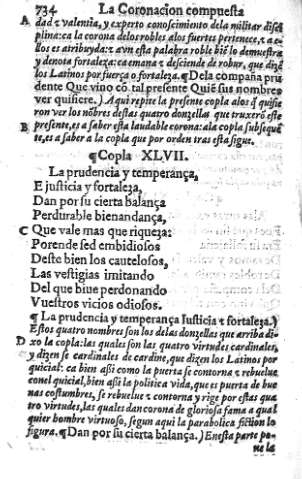 734 La Coronacion compuesta
A dad & valentia, y experto conoscimiento dela militar disci
plina: ca la corona delos robles alos fuertes pertenece, & a e-
llos es atribuyda: & avn esta palabra roble biẽ lo demuestra
y denota fortaleza: ca emana & desciende de robur, que dizẽ
los Latinos por fuerça o fortaleza. ¶ Dela compaña pru
dente Que vino cõ tal presente Quiẽ sus nombres
ver quisiere.) Aqui repite la presente copla alos q̃ quisie
ron ver los nõbres destas quatro donzellas que truxerõ este
B presente, es a saber esta laudable corona: ala copla subsequẽ
te, es a saber a la copla que por orden tras esta sigue.
¶ Copla XLVII.
La prudencia y temperança,
E justicia y fortaleza,
Dan por su cierta balança
Perdurable bienandança,
C Que vale mas que riqueza:
Porende sed embidiosos
Deste bien los cautelosos,
Las vestigias imitando
Del que biue perdonando
Vuestros vicios odiosos.
¶ La prudencia y temperança Iusticia & fortaleza.)
Estos quatro nombres son los delas donzellas que arriba di-
D xo la copla: las quales son las quatro virtudes cardinales,
y dizen se cardinales de cardine, que dizen los Latinos por
quicial: ca bien assi como la puerta se contorna & rebuelue
conel quicial, bien assi la politica vida, que es puerta de bue
nas costumbres, se rebuelue & contorna y rige por estas qua
tro virtudes, las quales dan corona de gloriosa fama a qual
quier hombre virtuoso, segun aqui la parabolica fiction lo
figura. ¶ Dan por su cierta balança.) Enesta parte po-
ne la